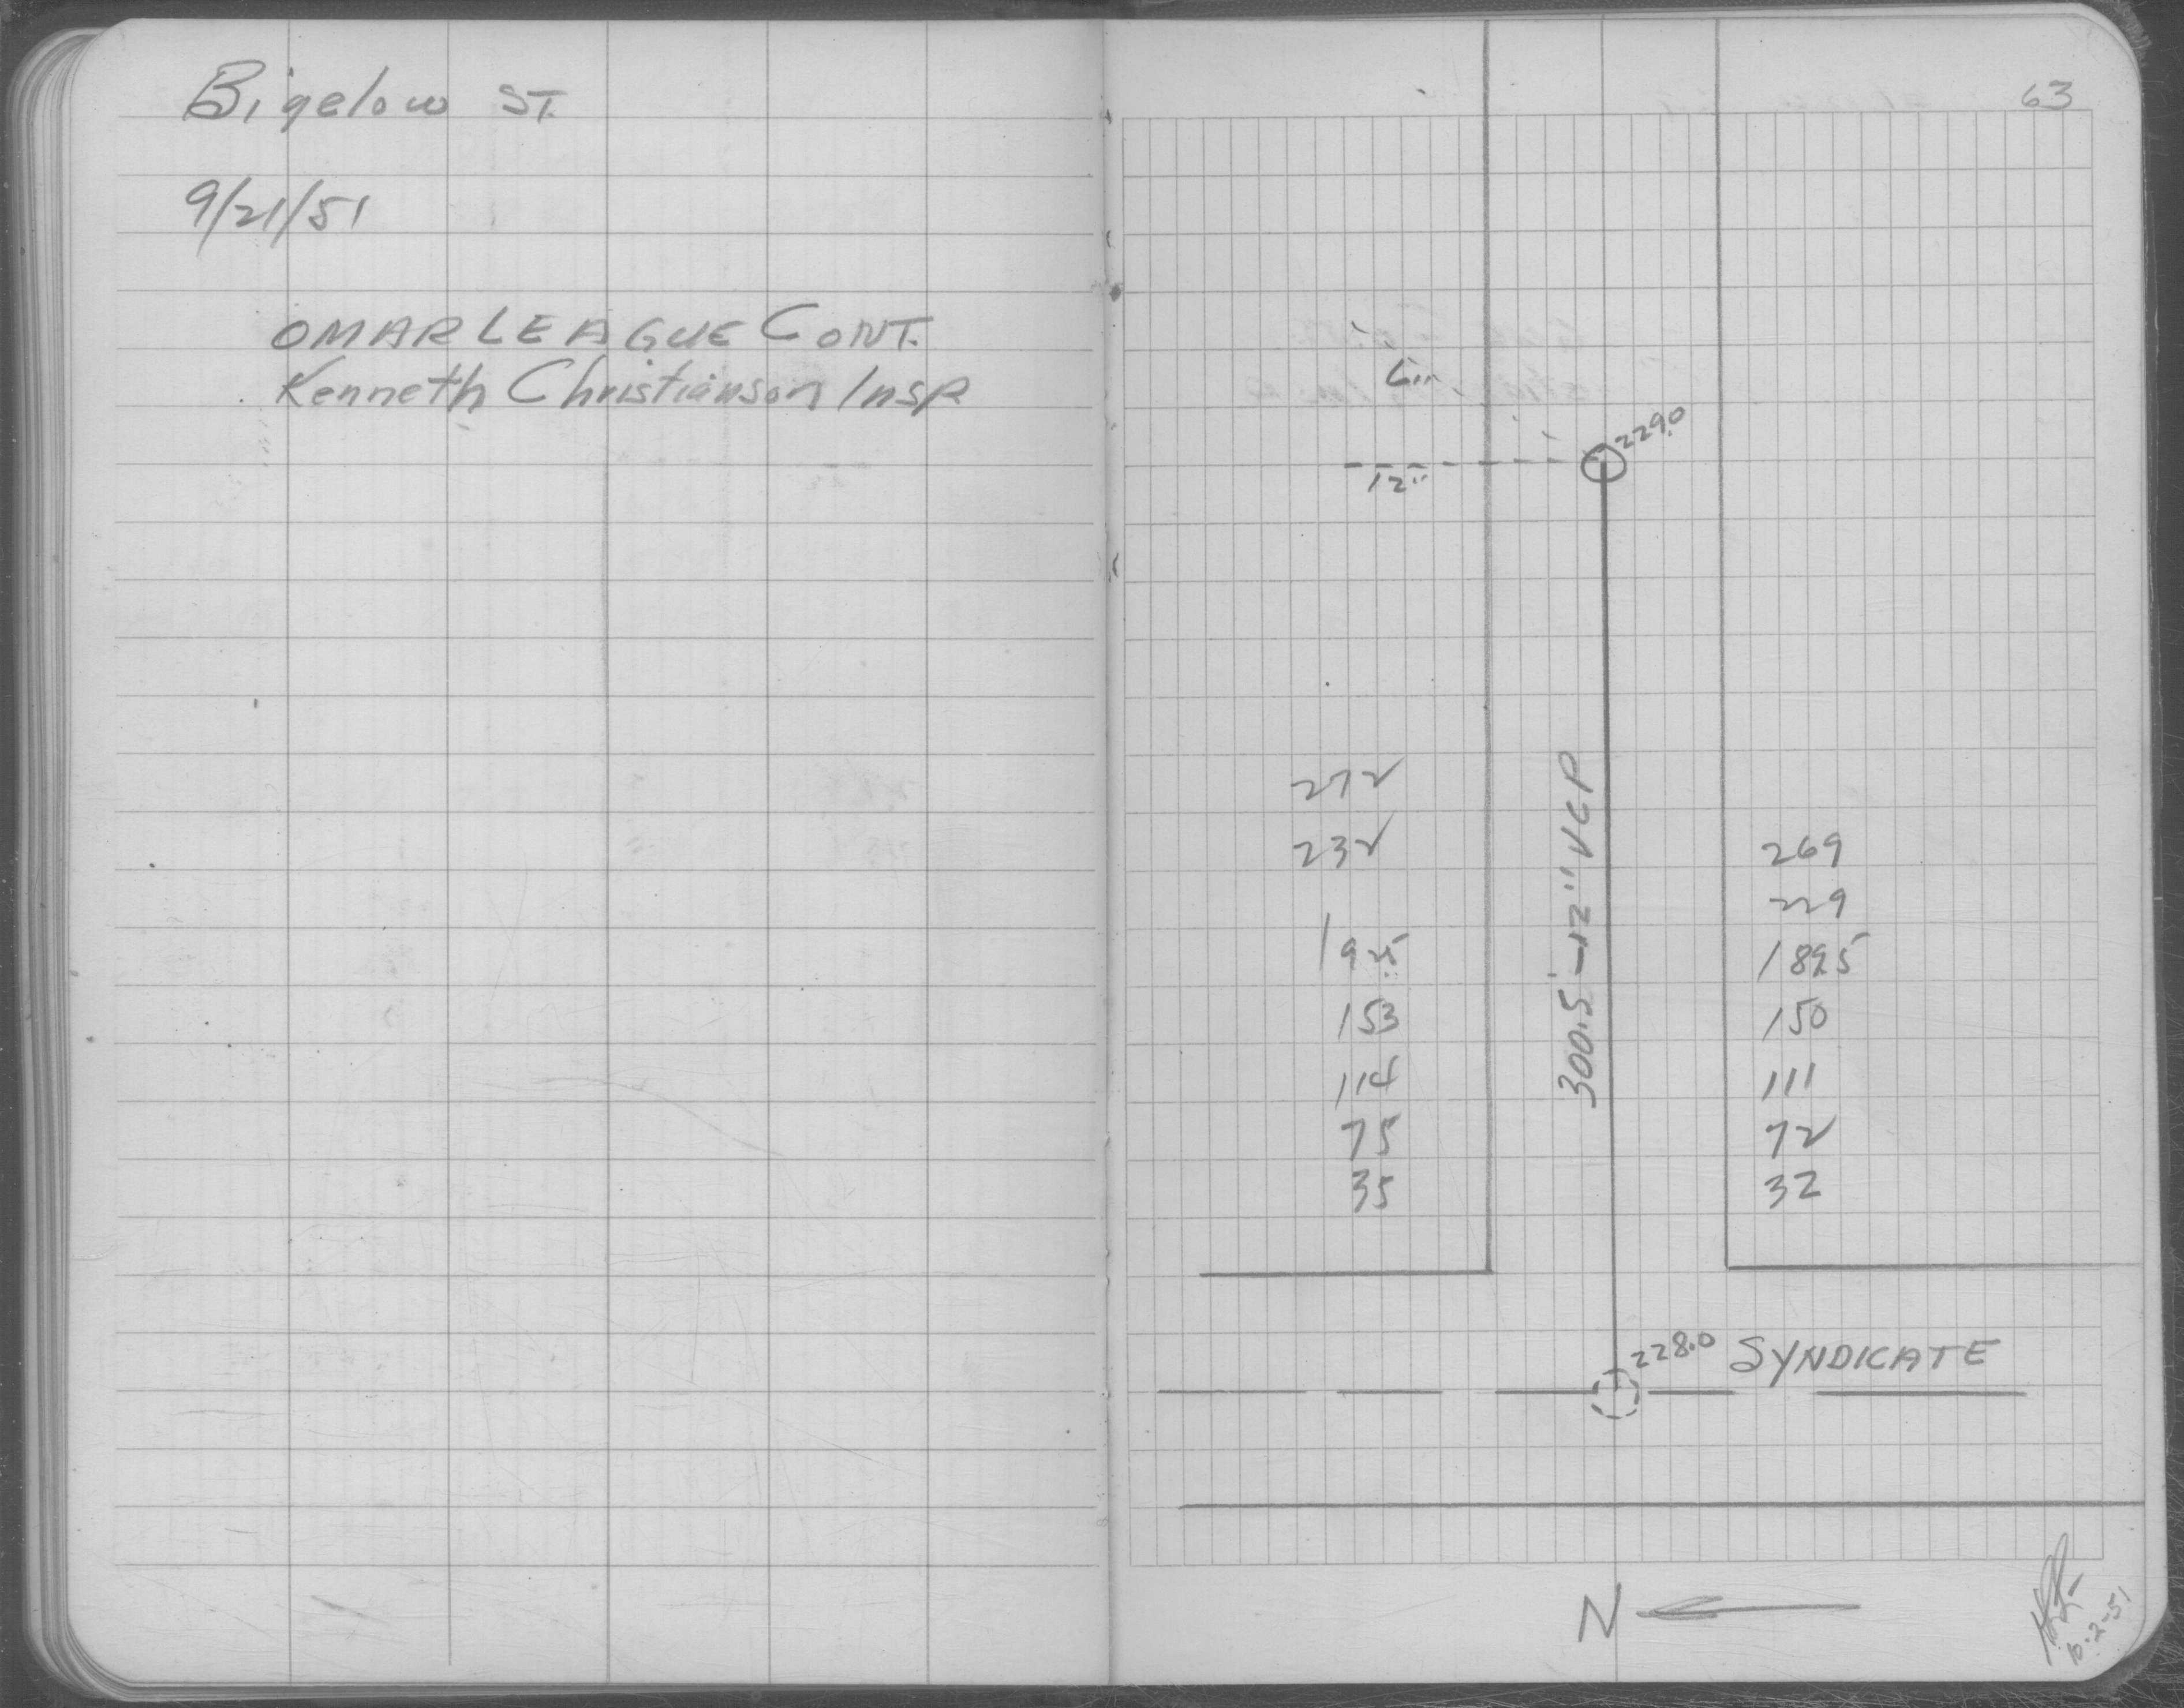 Bigelow ST.
9/21/51
OMAR LEAGUE CONT.
Kenneth Christianson Insp
63
6"
229.0
12"
272
232
192.5
153
114
75
35
300.5' - 12" VCP
269
229
189.5
150
111
72
32
228.0 SYNDICATE
N
10-2-51